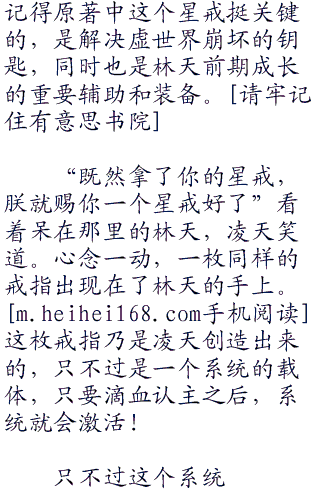 记得原著中这个星戒挺关键
的，是解决虚世界崩坏的钥
匙，同时也是林天前期成长
的重要辅助和装备。[请牢记
住有意思书院]
“既然拿了你的星戒，
朕就赐你一个星戒好了”看
着呆在那里的林天，凌天笑
道。心念一动，一枚同样的
戒指出现在了林天的手上。
[m.heihei168.com手机阅读]
这枚戒指乃是凌天创造出来
的，只不过是一个系统的载
体，只要滴血认主之后，系
统就会激活！
只不过这个系统